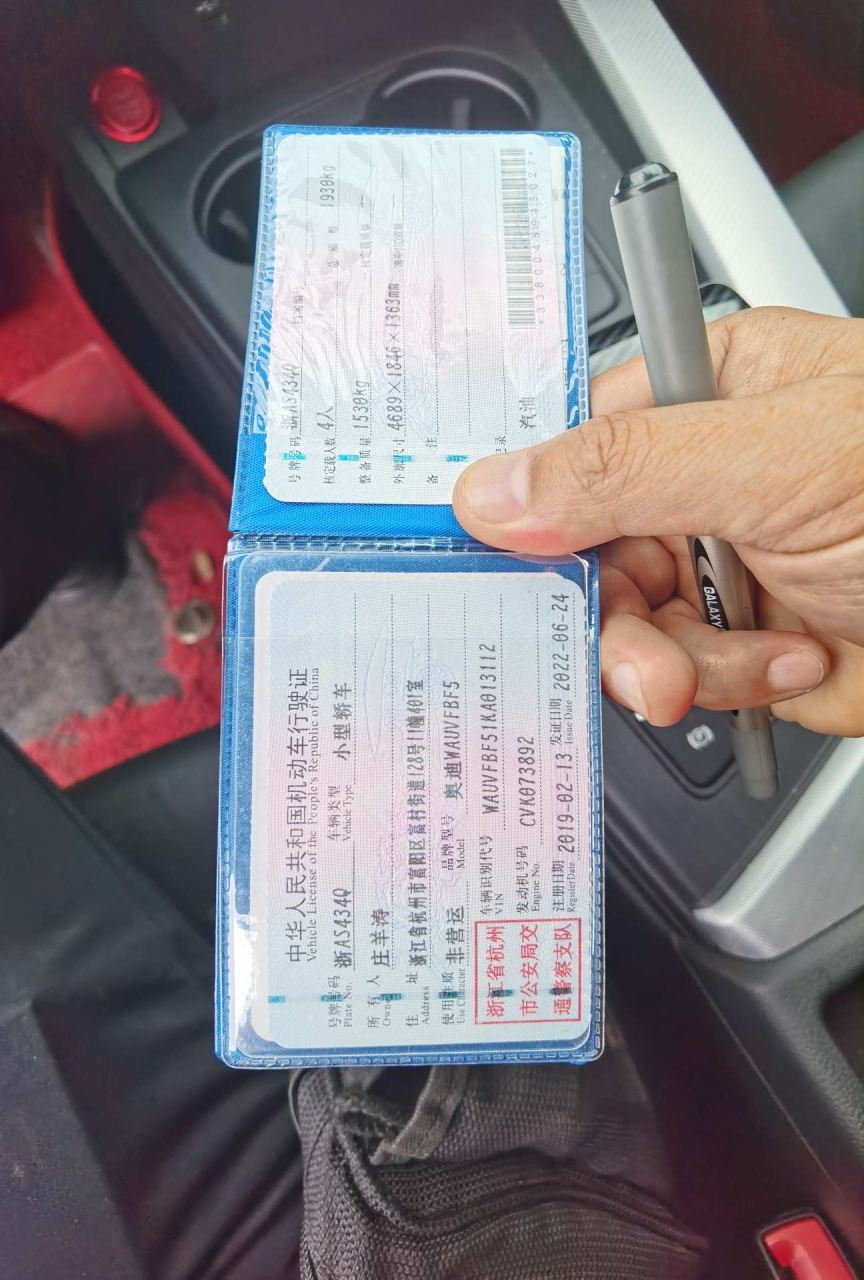 中华人民共和国机动车行驶证
Vehicle License of the People's Republic of China
号牌号码 Plate No. 浙AS434Q 车辆类型 Vehicle Type 小型轿车
所有人 Owner 庄羊涛
住址 Address 浙江省杭州市富阳区富村街道128号11幢401室
使用性质 Use Character 非营运 品牌型号 Model 奥迪WAUVFBF5
浙江省杭州
市公安局交
通警察支队
车辆识别代号 VIN WAUVFBF51KA013112
发动机号码 Engine No. CVK073892
注册日期 Register Date 2019-02-13 发证日期 Issue Date 2022-06-24
号牌号码 浙AS434Q
核定载人数 4人 总质量 1930kg
整备质量 1530kg 核定载质量
外廓尺寸 4689×1846×1363mm
备注
汽油
GALAXY